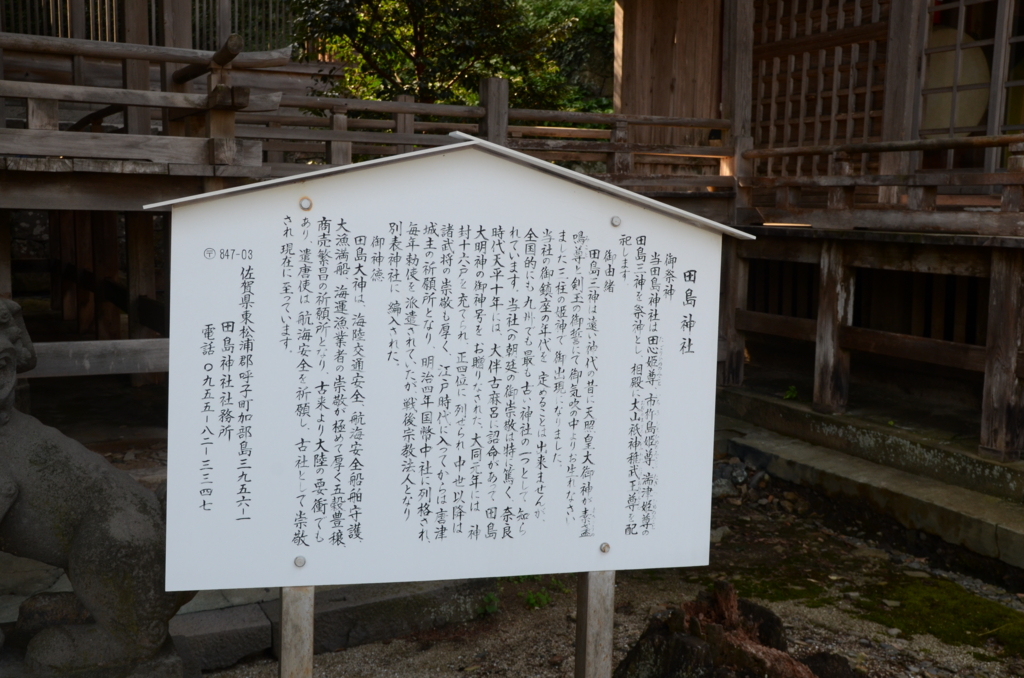 田島神社
御祭神
当田島神社は田心姫尊、市杵島姫尊、湍津姫尊の
田島三神を祭神とし、相殿に大山祇神稚武王尊を配
祀します
御由緒
田島三神は遠い神代の昔に天照皇大御神が素盞
嗚尊と剣玉の御誓にて御気吹の中よりお生れなさい
ました三柱の姫神で御出現になりました。
当社の御鎮座の年代を定めることは出来ませんが、
全国的にも九州でも最も古い神社の一つとして知ら
れています。当社への朝廷の御崇敬は特に篤く、奈良
時代天平十年には、大伴古麻呂に詔命があって、田島
大明神の御神号をお贈りなされた、大同元年には神
封十六戸を充てられ、正四位に列せられ、中世以降は
諸武将の崇敬も厚く、江戸時代に入ってからは唐津
城主の祈願所となり、明治四年国幣中社に列格され、
毎年勅使を派遣されていたが戦後宗教法人となり
別表神社に編入された、
御神徳
田島大神は、海陸交通安全、航海安全船舶守護
大漁満船、海運漁業者の崇敬が極めて厚く五穀豊穣、
商売繁昌の祈願所となり、古来より大陸の要衝でも
あり、遣唐使は、航海安全を祈願し、古社として崇敬
され現在に至っています。
〒847-03 佐賀県東松浦郡呼子町加部島三九五六ー一
田島神社社務所
電話〇九五五ー八二ー三三四七